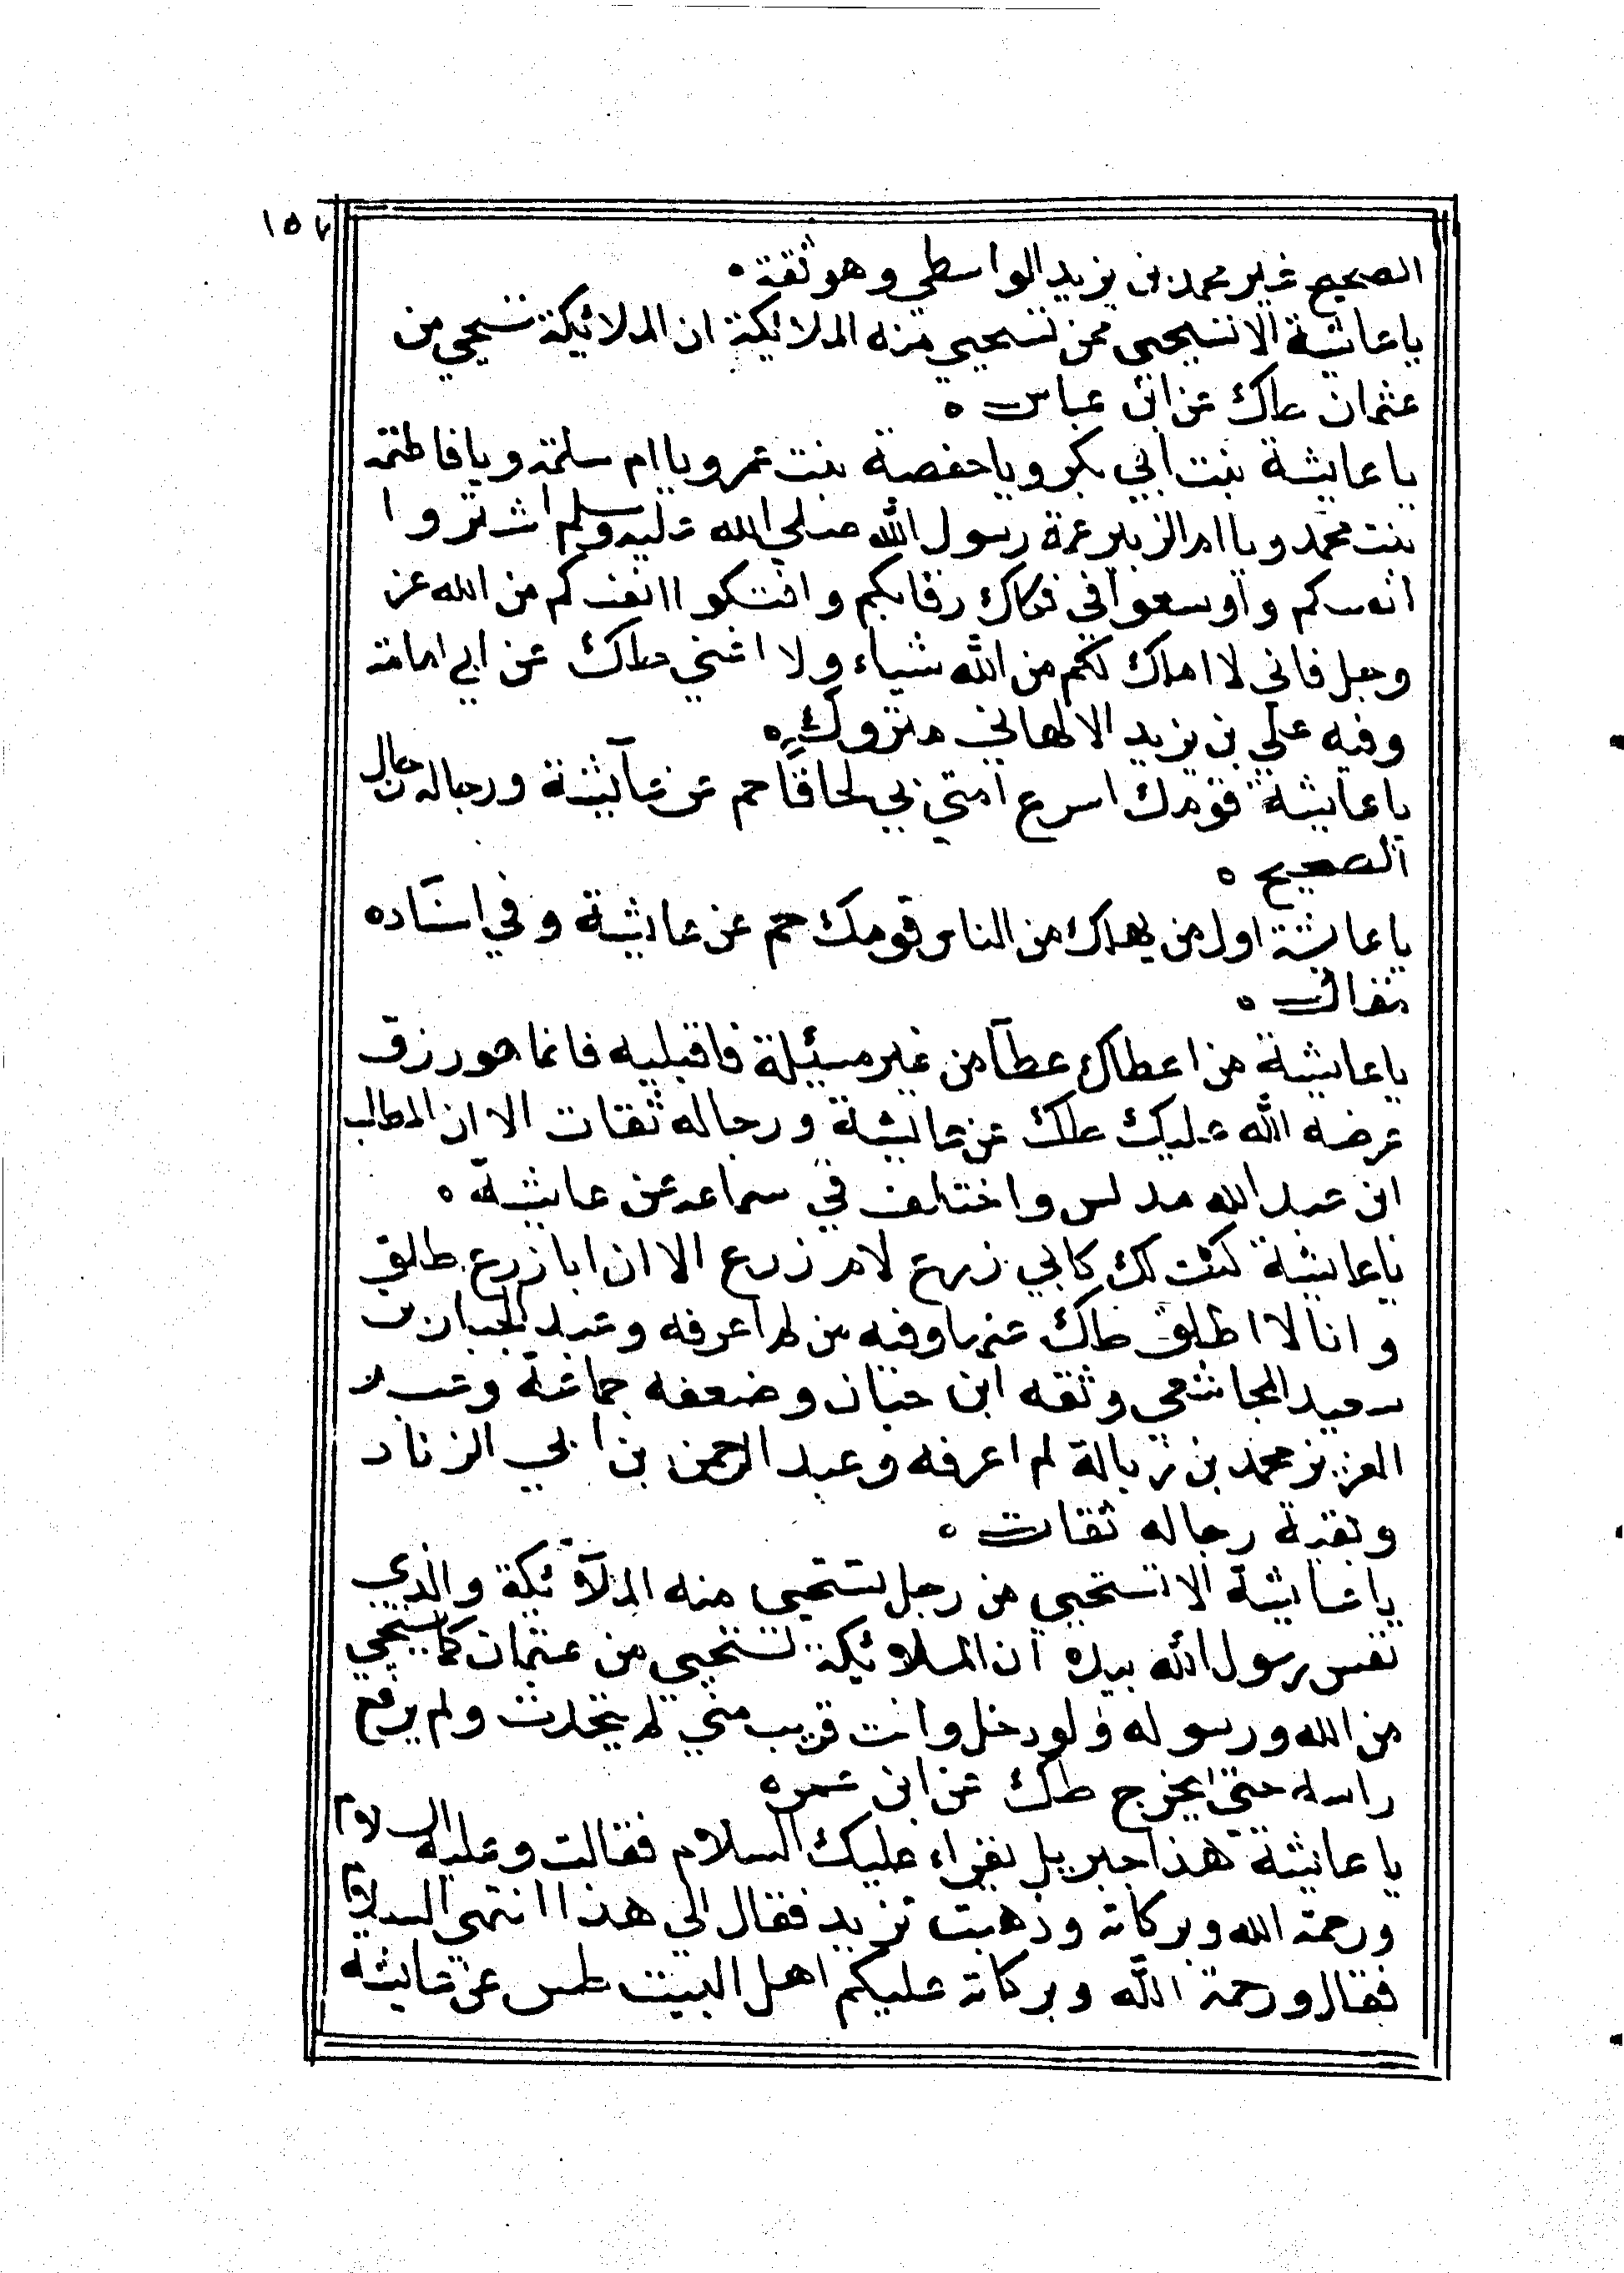 ١٥٧
الصحيح غير محمد بن يزيد الواسطي وهو ثقة ه
يا عايشة الا تستحيي ممن تستحيي منه الملائكة ان الملائكة تستحيي من
عثمان طك عن ابن عباس ه
يا عايشة بنت ابي بكر ويا حفصة بنت عمر ويا ام سلمة ويا فاطمة
بنت محمد ويا ام الزبير عمة رسول الله صلي الله عليه وسلم اشتروا
انفسكم واوسعوا في فكاك رقابكم وافتكوا انفسكم من الله عز
وجل فاني لا املك لكم من الله شياء ولا اغني طك عن ابي امامة
وفيه علي بن يزيد الالهاني متروك ه
يا عايشة قومك اسرع امتي بي لحاقا حم عن عآيشة ورجاله رجال
الصحيح ه
يا عايشة اول من يهلك من الناس قومك حم عن عايشة وفي اسناده
مقال ه
يا عايشة من اعطاك عطآ من غير مسئلة فاقبليه فانما هو رزق
عرضه الله عليك طك عن عايشة ورجاله ثقات الا ان المطلب
ابن عبد الله مدلس واختلف في سماعه عن عايشة ه
يا عايشة كنت لك كابي زرع لام زرع الا ان ابا زرع طلق
وانا لا اطلق طك عنها وفيه من لم اعرفه وعبد الجبار بن
سعيد المجاشعي وثقه ابن حبان وضعفه جماعة وعبد
العزيز محمد بن زبالة لم اعرفه وعبد الرحمن بن ابي الزناد
وبقية رجاله ثقات ه
يا عايشة الا تستحيي من رجل تستحيي منه الملآئكة والذي
نفس رسول الله بيده ان الملائكة تستحيي من عثمان كما تستحيي
من الله ورسوله ولو دخل وانت قريب مني لم يتحدث ولم يرفع
راسه حتي يخرج طك عن ابن عمر ه
يا عايشة هذا جبريل يقراء عليك السلام فقالت وعليه السلام
ورحمة الله وبركاته وذهبت تزيد فقال الي هذا انتهي السلام
فقال ورحمة الله وبركاته عليكم اهل البيت طس عن عايشة